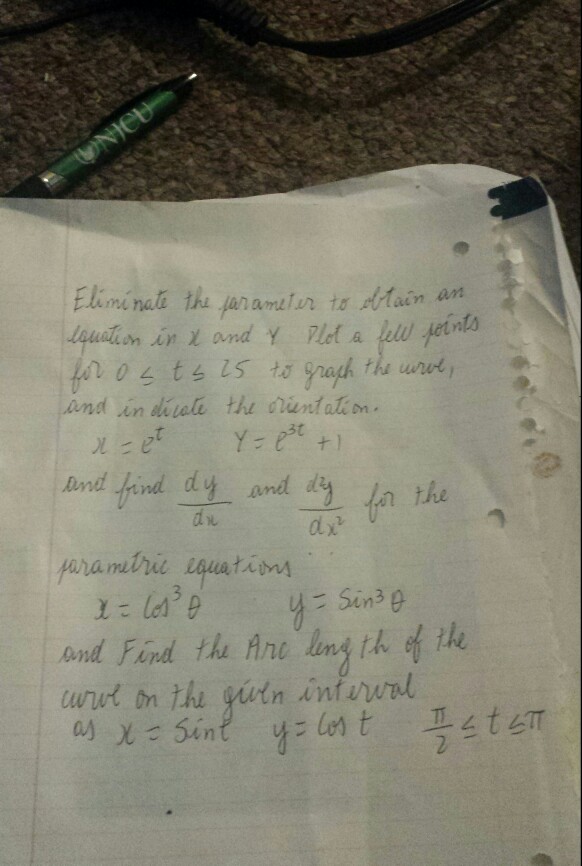 NJCU
Eliminate the parameter to obtain an
equation in x and Y Plot a few points
for 0 ≤ t ≤ 25 to graph the curve,
and indicate the orientation.
x = e^t Y = e^3t + 1
and find dy/dx and d²y/dx² for the
parametric equations
x = Cos³θ y = Sin³θ
and Find the Arc length of the
curve on the given interval
as x = Sint y = Cos t π/2 ≤ t ≤ π